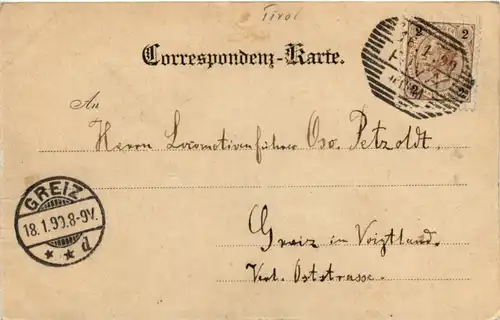 Tirol
Correspondenz-Karte.
2 2
An
Herrn Locomotivführer Osw. Petzoldt.
GREIZ
18.1.99.8-9V.
* * d
Greiz in Voigtland.
Verl. Oststrasse.